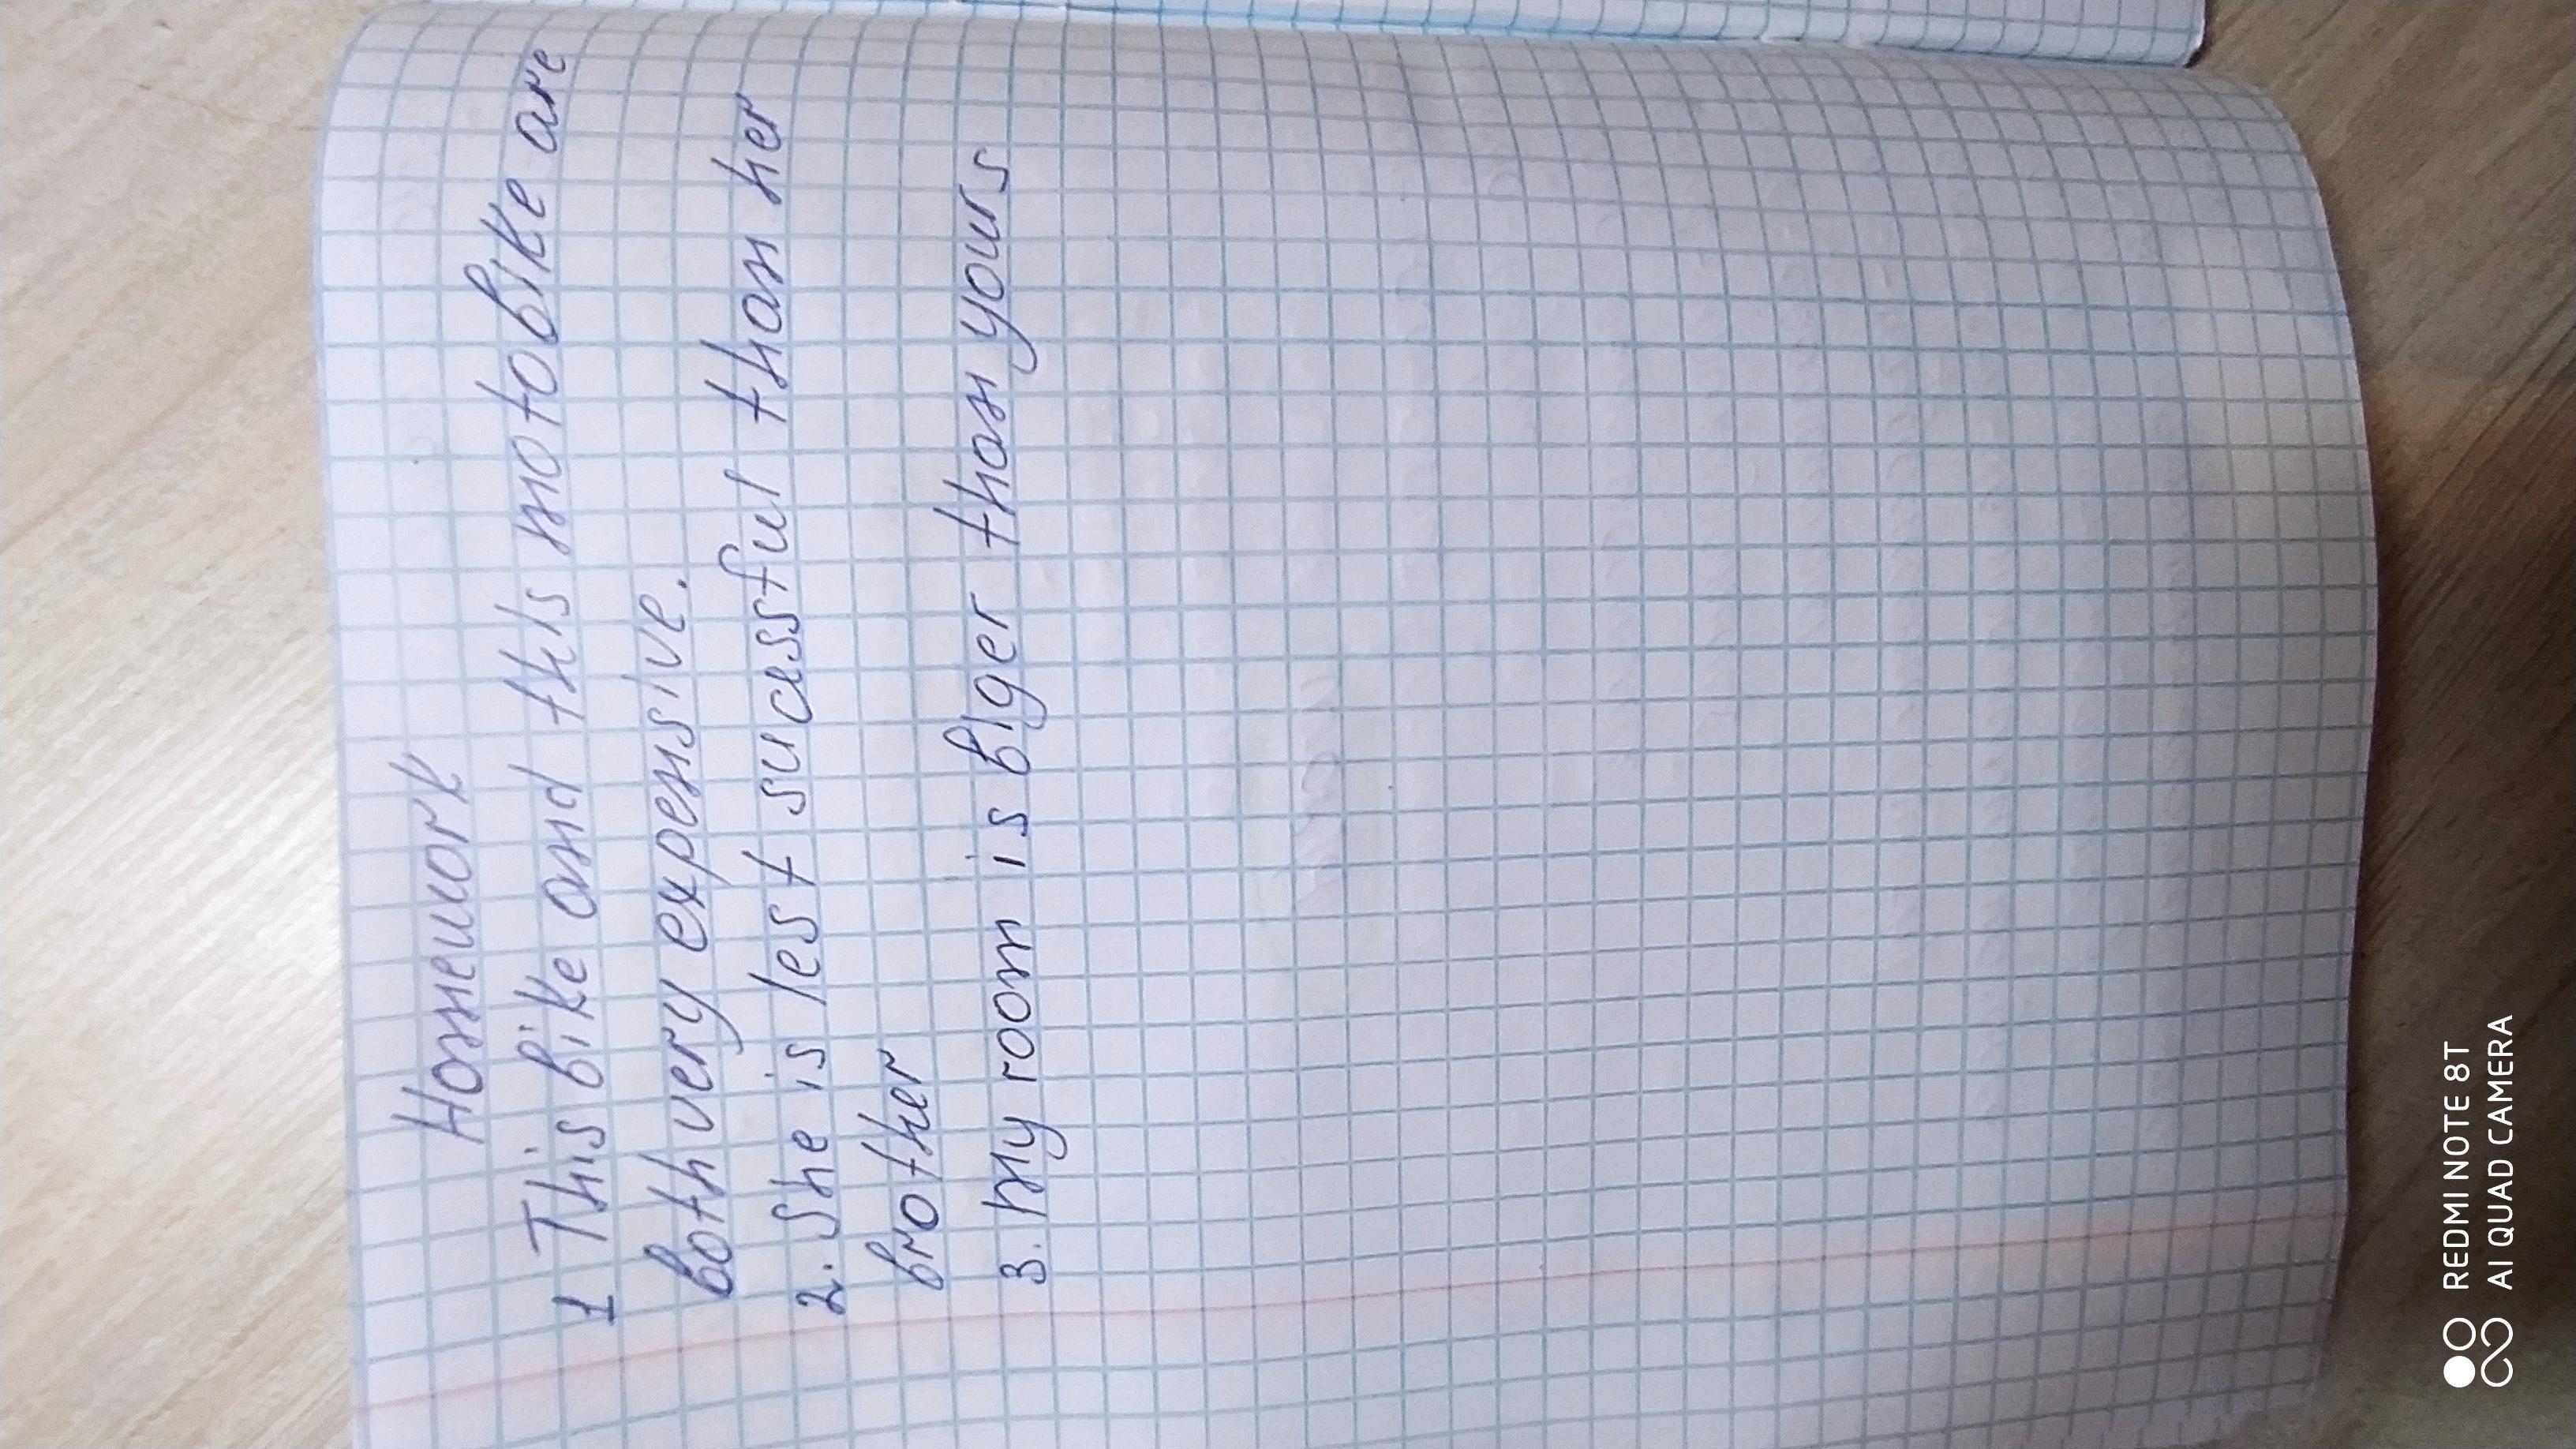 Homework
1 This bike and this motobike are
both very expensive.
2. She is lest sucessful than her
brother
3. my room is biger than yours
REDMI NOTE 8T
AI QUAD CAMERA